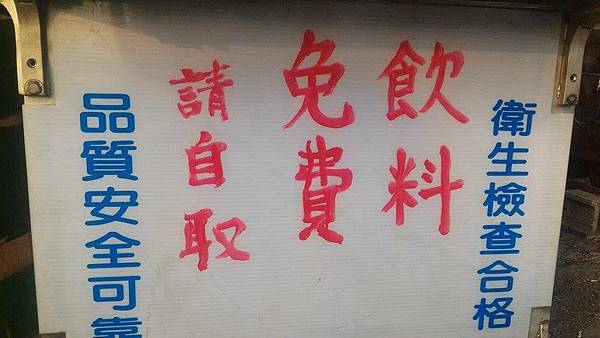 衛生檢查合格
飲料
免費
請自取
品質安全可靠